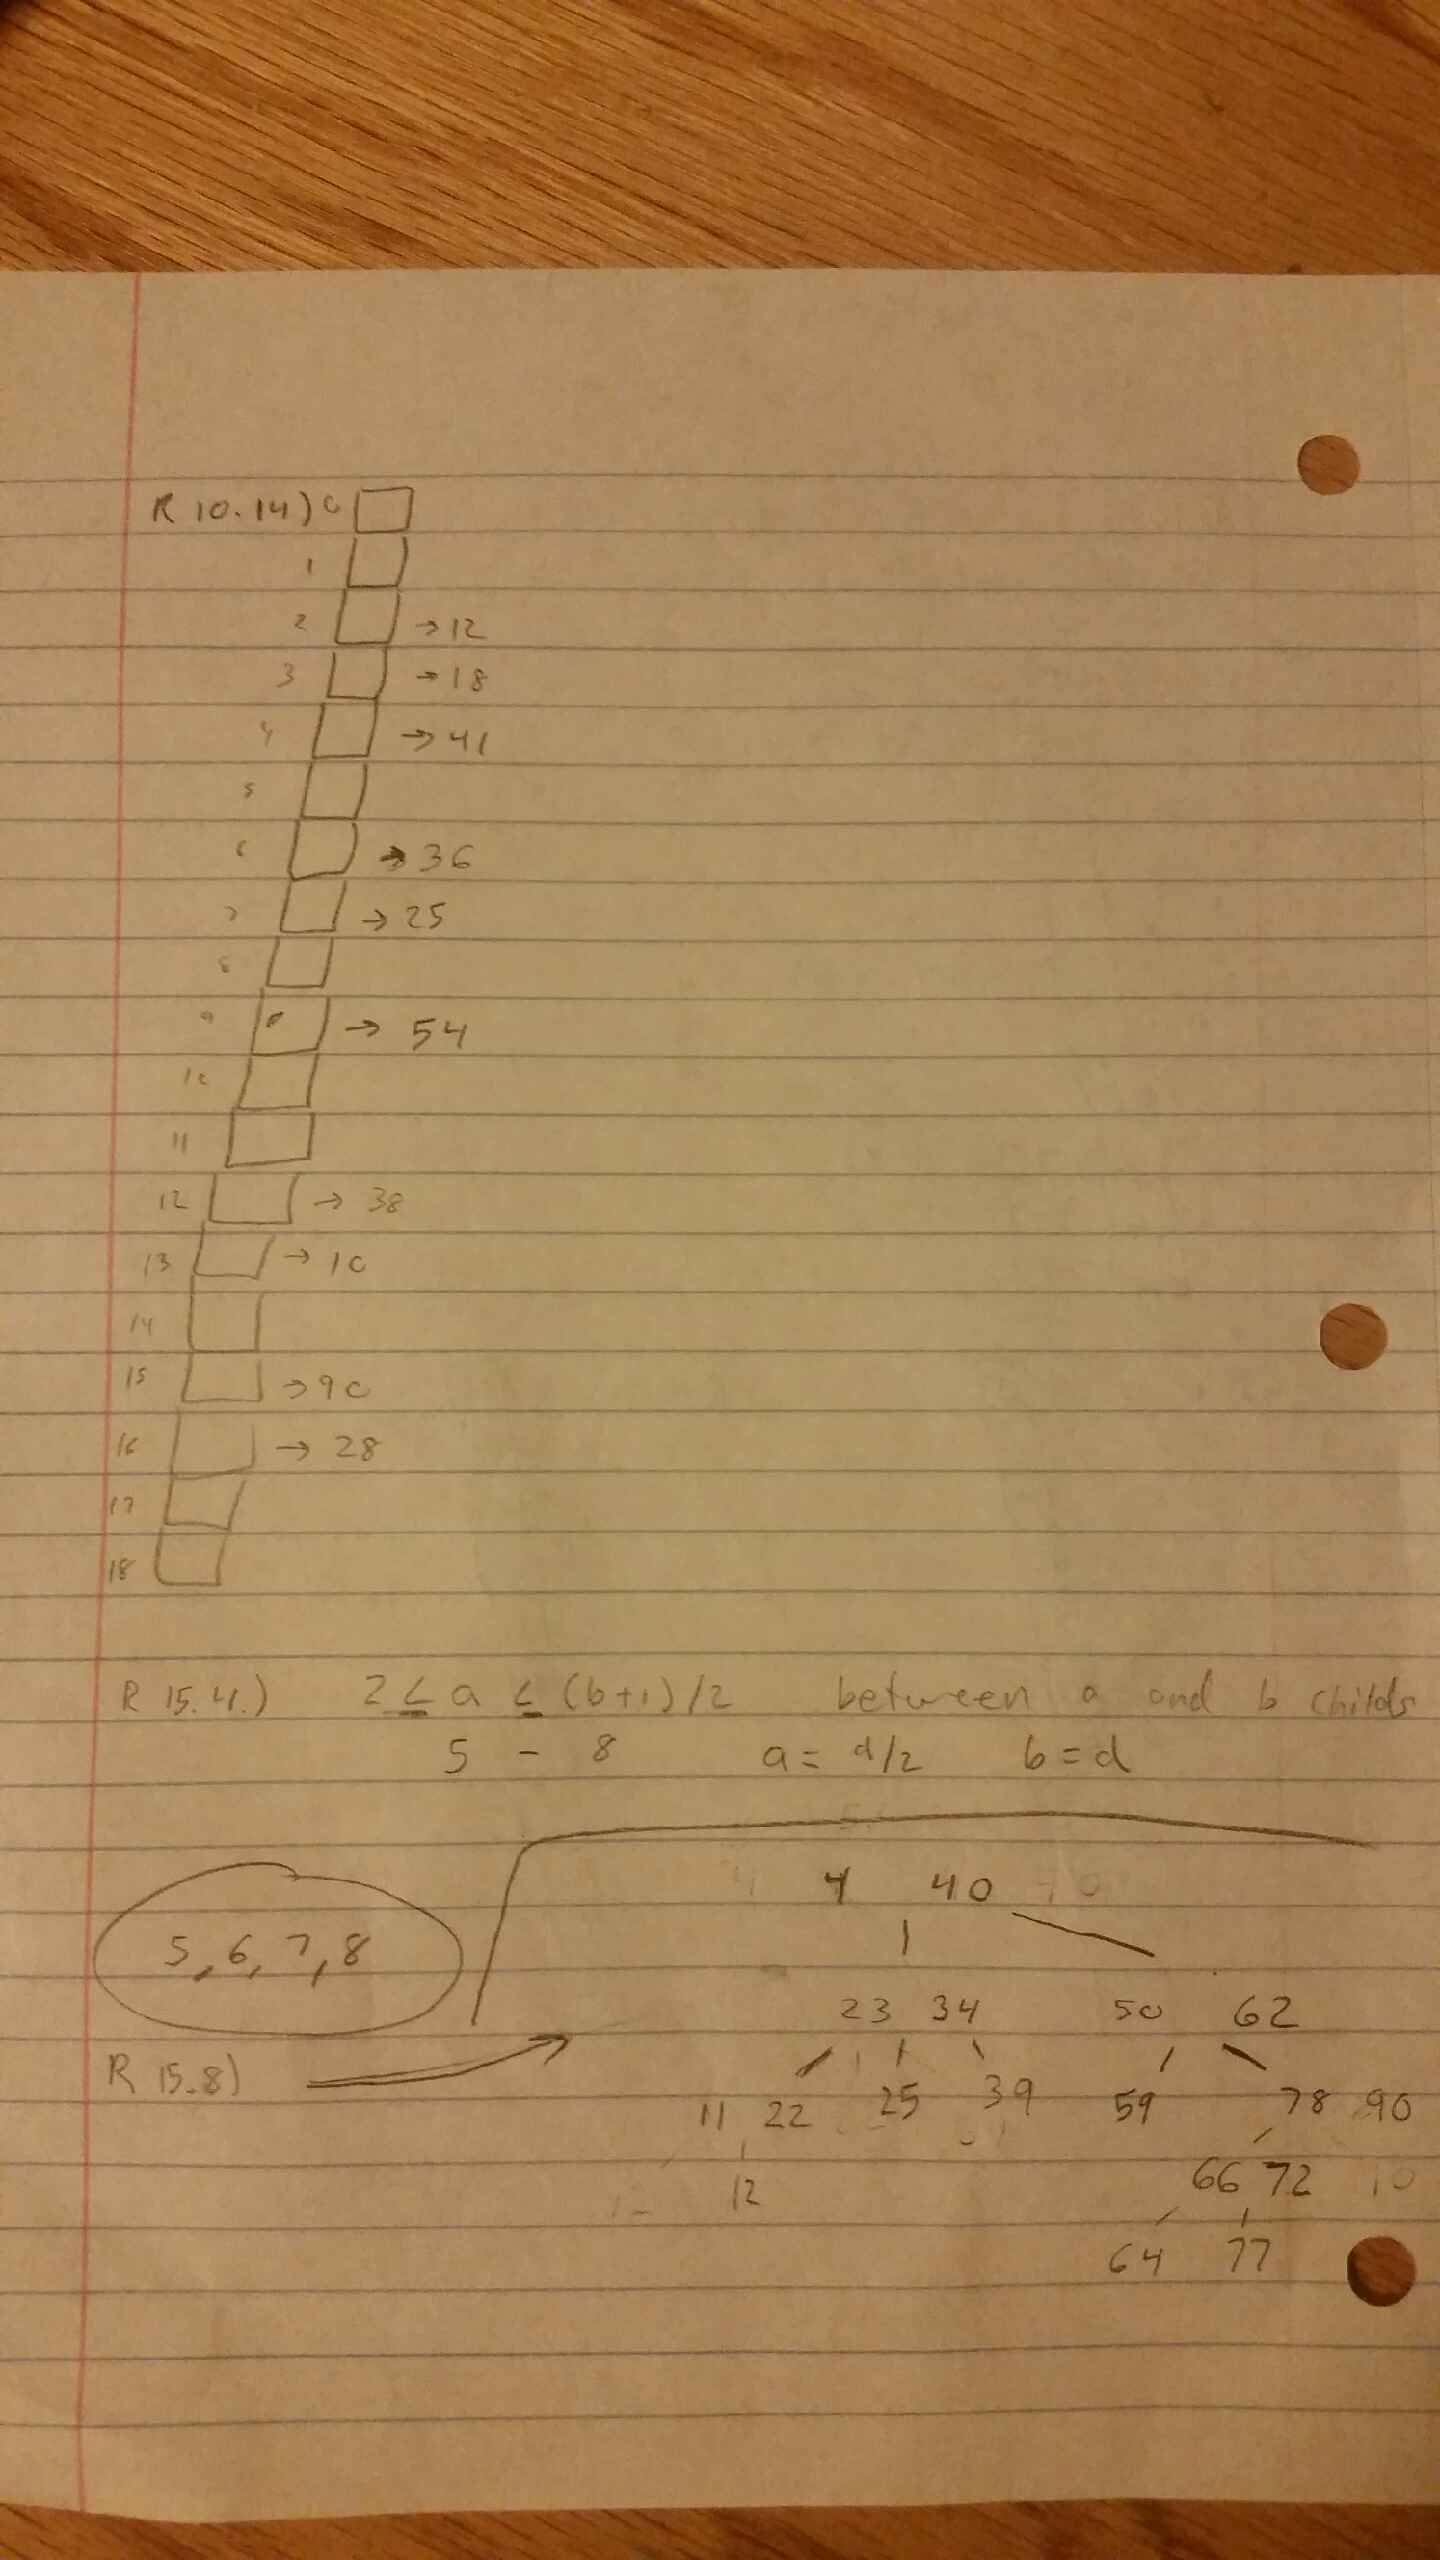 R 10.14) 0
1
2 → 12
3 → 18
4 → 41
5
6 → 36
7 → 25
8
9 → 54
10
11
12 → 38
13 → 10
14
15 → 90
16 → 28
17
18
R 15.4.) 2 ≤ a ≤ (b+1)/2 between a and b childs
5 - 8 a = d/2 b = d
4 40
5, 6, 7, 8
23 34 50 62
R 15.8)
11 22 25 39 59 78 90
12 66 72
64 77